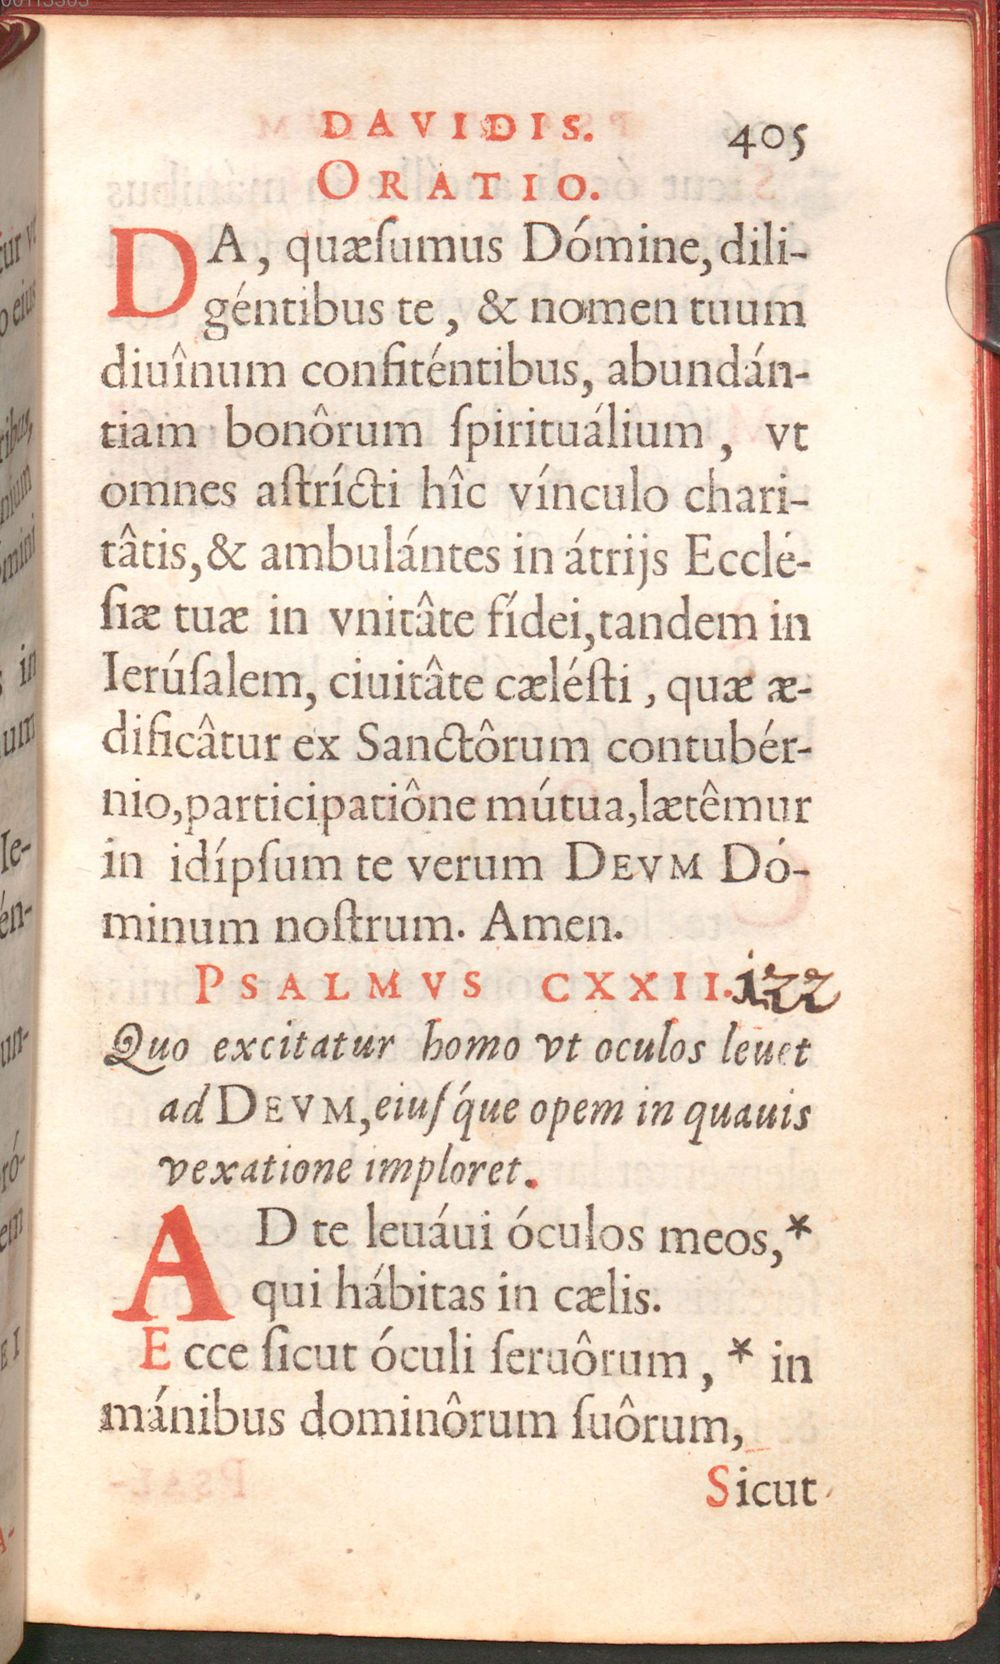 DAVIDIS. 405
ORATIO.
DA, quæſumus Dómine, dili-
géntibus te, & nomen tuum
diuînum confiténtibus, abundán-
tiam bonôrum ſpirituálium, vt
omnes aſtrícti hîc vínculo chari-
tâtis, & ambulántes in átrijs Ecclé-
ſiæ tuæ in vnitâte fídei, tandem in
Ierúſalem, ciuitâte cæléſti, quæ æ-
dificâtur ex Sanctôrum contubér-
nio, participatiône mútua, lætêmur
in idípſum te verum DEVM Dó-
minum noſtrum. Amen.
PSALMVS CXXII. 122
Quo excitatur homo vt oculos leuet
ad DEVM, eiuſq́ue opem in quauis
vexatione imploret.
AD te leuáui óculos meos, *
qui hábitas in cælis.
Ecce ſicut óculi ſeruôrum, * in
mánibus dominôrum ſuôrum,
Sicut